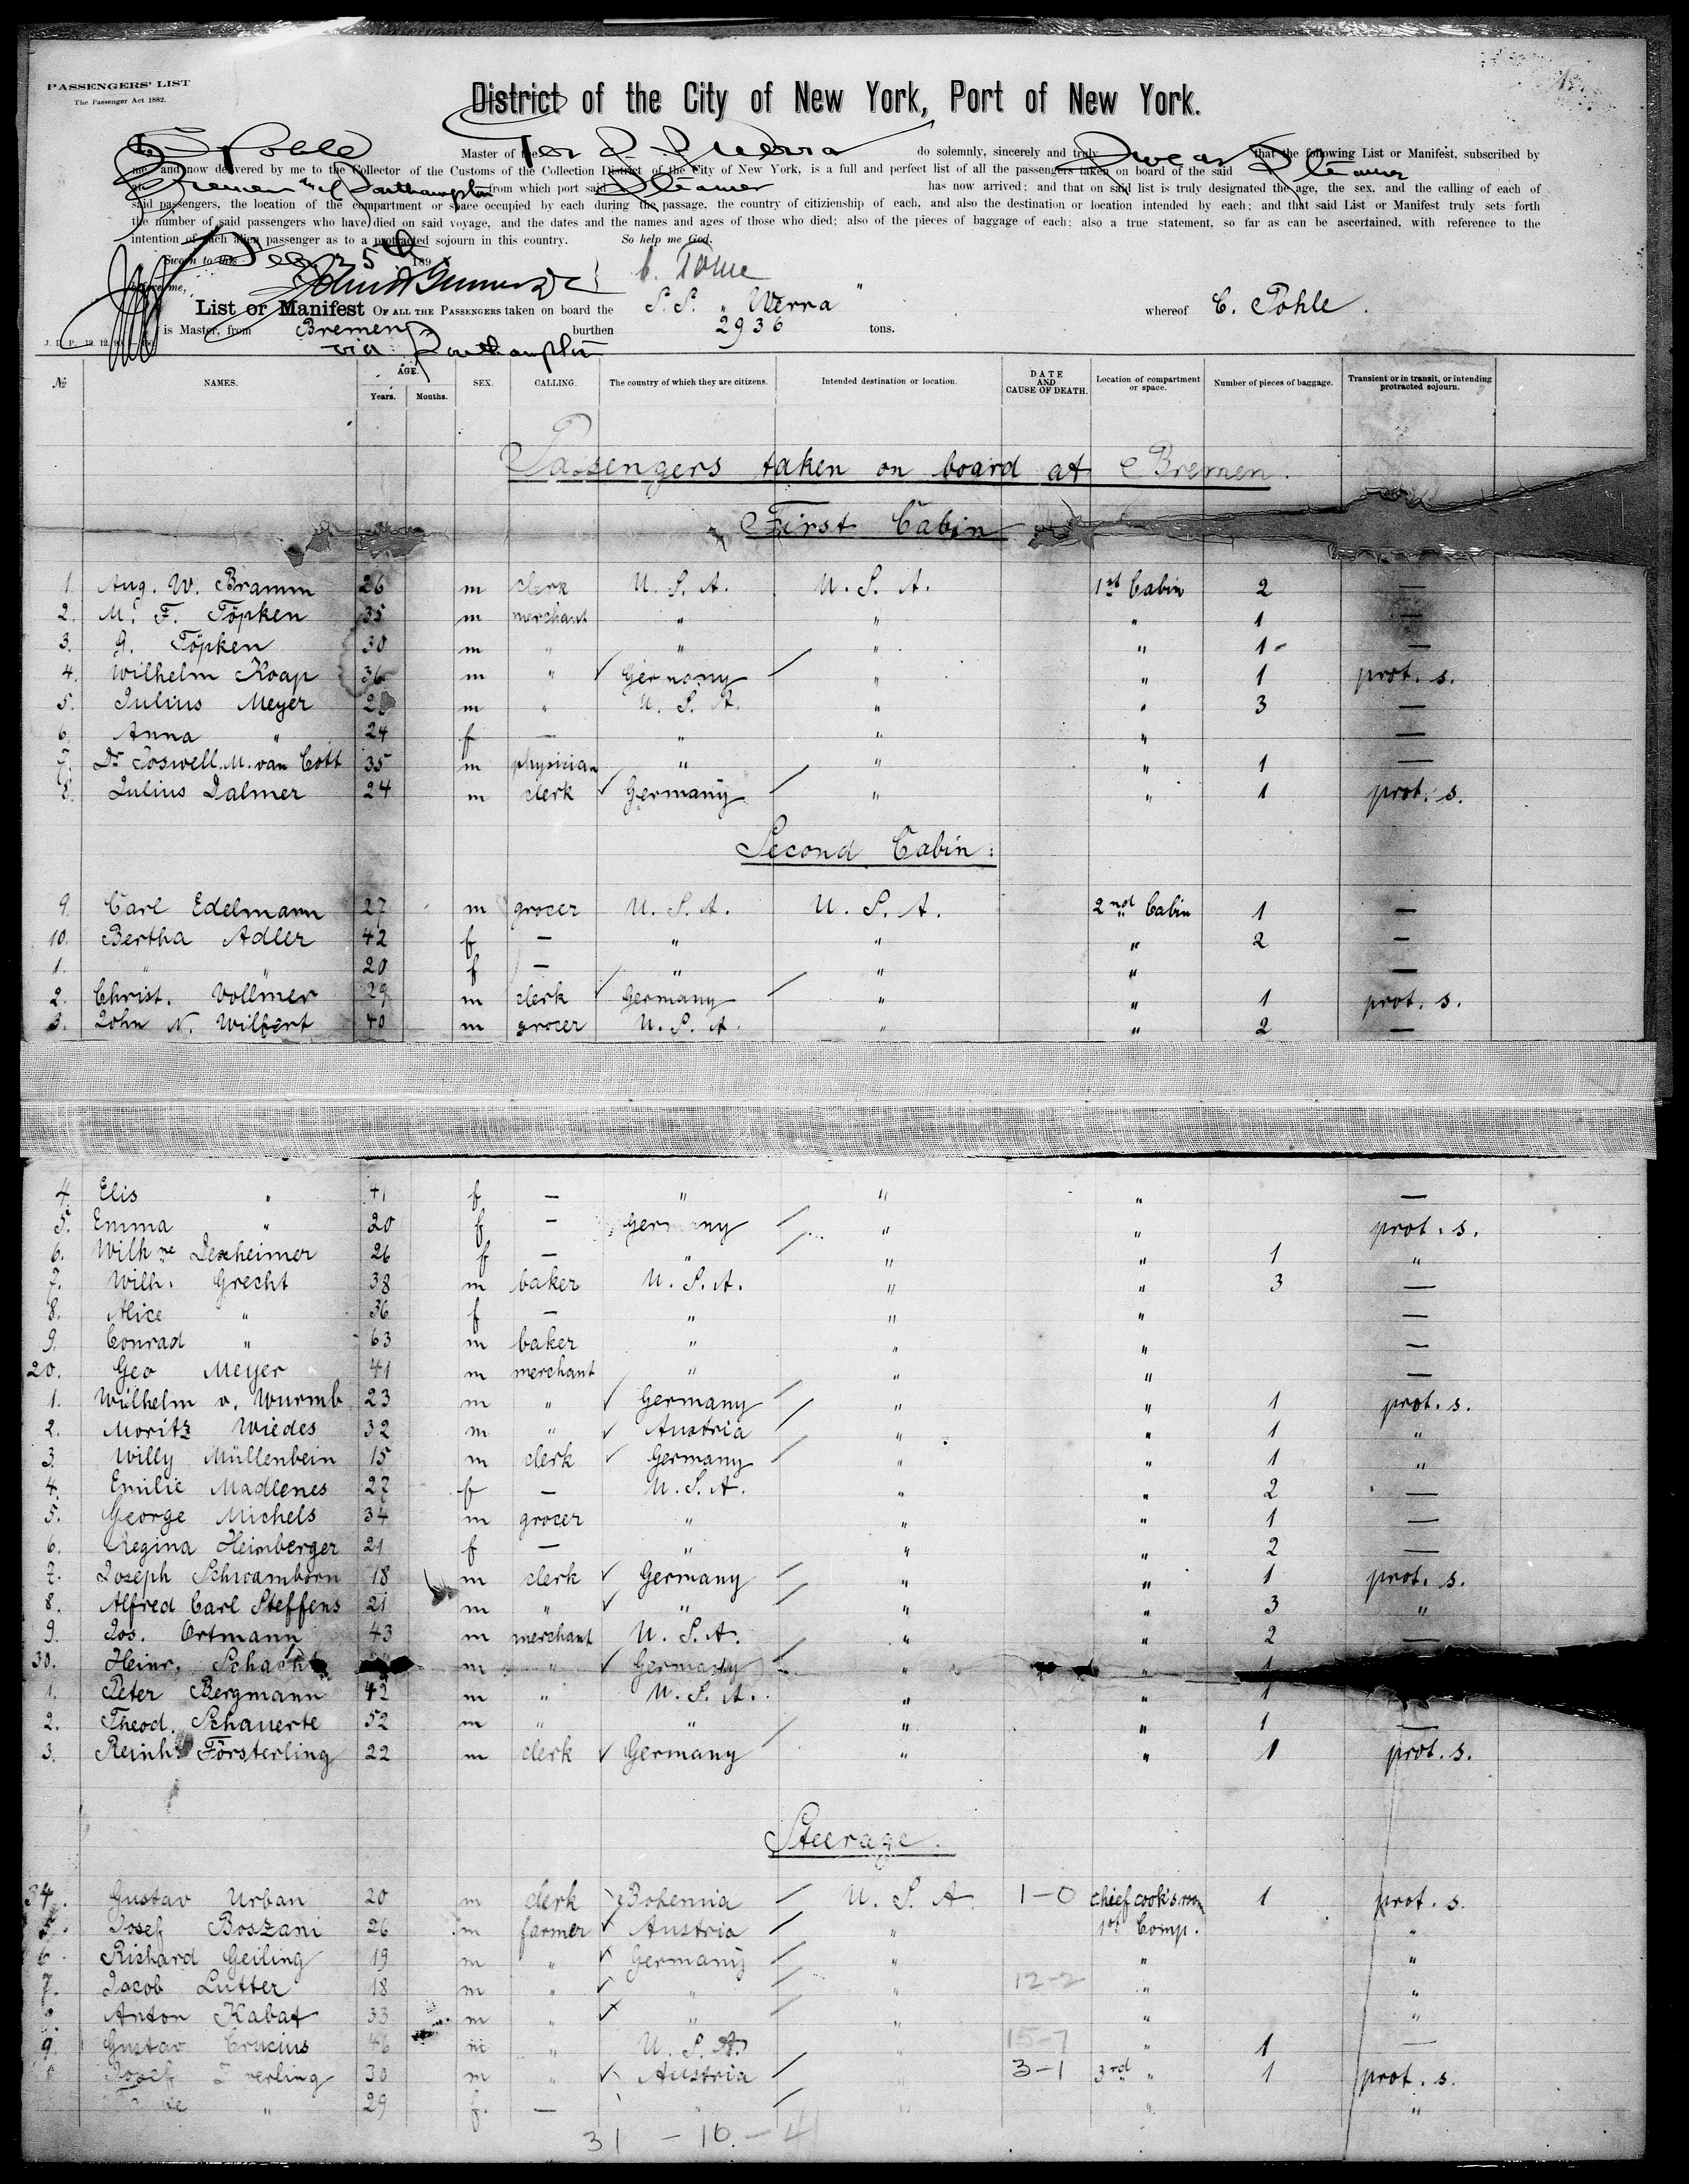 PASSENGERS' LIST
The Passenger Act 1882.
District of the City of New York, Port of New York.
I, C. Pohle Master of the Ger. S. Werra do solemnly, sincerely and truly swear that the following List or Manifest, subscribed by
me, and now delivered by me to the Collector of the Customs of the Collection District of the City of New York, is a full and perfect list of all the passengers taken on board of the said Steamer
at Bremen & Southampton from which port said Steamer has now arrived; and that on said list is truly designated the age, the sex, and the calling of each of
said passengers, the location of the compartment or space occupied by each during the passage, the country of citizienship of each, and also the destination or location intended by each; and that said List or Manifest truly sets forth
the number of said passengers who have died on said voyage, and the dates and the names and ages of those who died; also of the pieces of baggage of each; also a true statement, so far as can be ascertained, with reference to the
intention of each alien passenger as to a protracted sojourn in this country. So help me God.
Sworn to this 5th 189
before me, C. Pohle
List or Manifest OF ALL THE PASSENGERS taken on board the S.S. "Werra" whereof C. Pohle.
is Master, from Bremen burthen 2936 tons.
via Southampton
№ NAMES. AGE. Years. Months. SEX. CALLING. The country of which they are citizens. Intended destination or location. DATE AND CAUSE OF DEATH. Location of compartment or space. Number of pieces of baggage. Transient or in transit, or intending protracted sojourn.
Passengers taken on board at Bremen.
First Cabin
1. Aug. W. Bramm 26 m clerk U. S. A. U. S. A. 1st Cabin 2 —
2. M. F. Töpken 35 m merchant " " " 1 —
3. G. Töpken 30 m " " " " 1 —
4. Wilhelm Koap 36 m " ✓ Germany / " " 1 prot. s.
5. Julius Meyer m " U. S. A. " " 3 —
6. Anna " 24 f — " " " —
7. Dr Joswell M. van Cott 35 m physician " " " 1 —
8. Julius Dalmer 24 m clerk ✓ Germany / " " 1 prot. s.
Second Cabin:
9. Carl Edelmann 27 m grocer U. S. A. U. S. A. 2nd Cabin 1 —
10. Bertha Adler 42 f — " " " 2 —
1. " " 20 f — " " " —
2. Christ. Vollmer 29 m clerk ✓ Germany / " " 1 prot. s.
3. John N. Wilbert 40 m grocer U. S. A. " " 2 —
4. Elis " 41 f — " " " —
5. Emma " 20 f — Germany / " " prot. s.
6. Wilhne Dexheimer 26 f — " / " " 1 "
7. Wilh. Grecht 38 m baker U. S. A. " " 3 —
8. Alice " 36 f — " " " —
9. Conrad " 63 m baker " " " —
20. Geo Meyer 41 m merchant " " " —
1. Wilhelm v. Wurmb 23 m " ✓ Germany / " " 1 prot. s.
2. Moritz Wiedes 32 m " ✓ Austria / " " 1 "
3. Willy Müllenbein 15 m clerk ✓ Germany / " " 1 "
4. Emilie Madlenes 27 f — U. S. A. " " 2 —
5. George Michels 34 m grocer " " " 1 —
6. Regina Heimberger 21 f — " " " 2 —
7. Joseph Schwamborn 18 m clerk ✓ Germany / " " 1 prot. s.
8. Alfred Carl Steffens 21 m " ✓ " / " " 3 "
9. Jos. Ortmann 43 m merchant U. S. A. " " 2 —
30. Heinr. Schacht m " ✓ Germany / " " 1
1. Peter Bergmann 42 m " U. S. A. " " 1
2. Theod. Schauerte 52 m " " " " 1 —
3. Reinh. Försterling 22 m clerk ✓ Germany / " " 1 prot. s.
Steerage.
34. Gustav Urban 20 m clerk Bohemia / U. S. A. 1-0 chief cook's room 1 prot. s.
5. Josef Boszani 26 m farmer ✓ Austria / " 1st Comp. "
6. Richard Geiling 19 m " ✓ Germany / " " "
7. Jacob Lutter 18 m " ✓ " / " 12-2 " "
Anton Kabat 33 m " ✓ " / " " "
9. Gustav Crucius 46 m " U. S. A. " 15-7 " 1 —
Josef 30 m " ✓ Austria / " 3-1 3rd " 1 prot. s.
" 29 f. — " / " " "
31 - 10 - 41